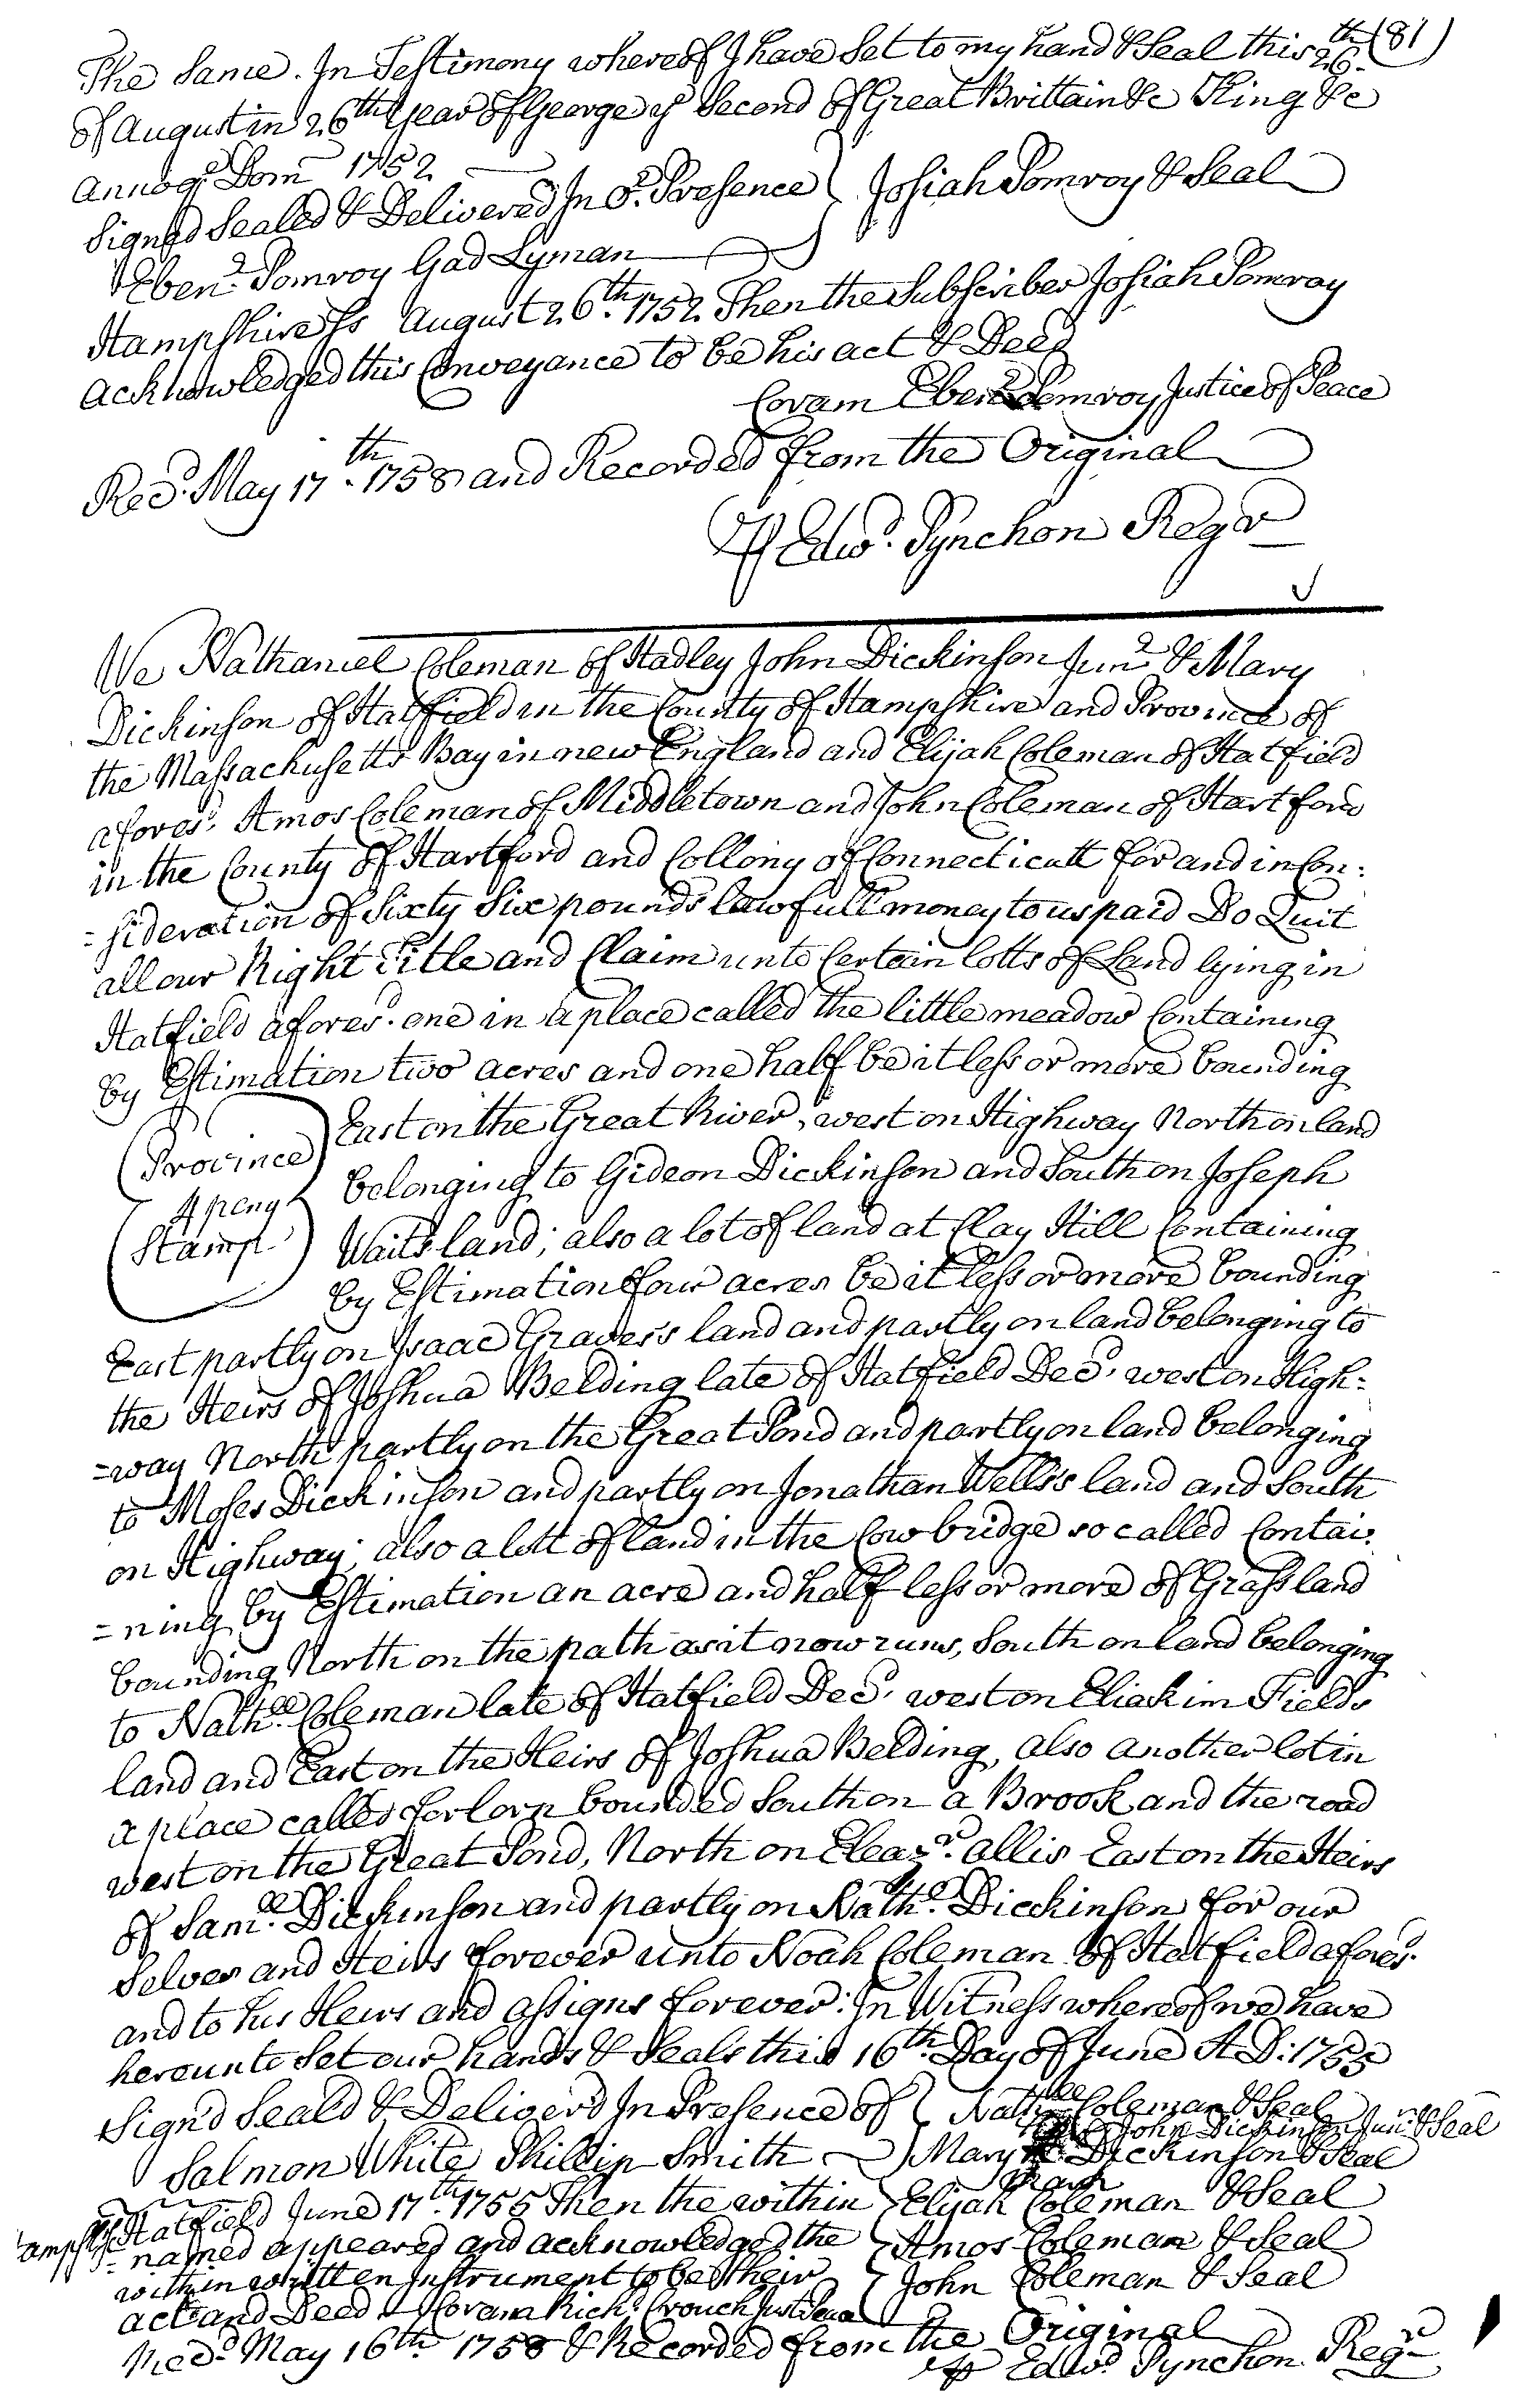 (81)
The Same. In Testimony whereof I have Set to my hand & Seal this 26th.
of August in 26th Year of George ye Second of Great Brittain &c King &c
Annoq. Dom 1752
Signed Sealed & Delivered In Or. Presence } Josiah Pomroy & Seal
Ebenr. Pomroy Gad Lyman
Hampshire Ss August 26th. 1752 Then the Subscriber Josiah Pomroy
Acknowledged this Conveyance to be his act & Deed
Coram Ebenr. Pomroy Justice of Peace
Recd. May 17th. 1758 and Recorded from the Original
P Edwd. Pynchon Regr
We Nathaniel Coleman of Hadley John Dickinson Junr. & Mary
Dickinson of Hatfield in the County of Hampshire and Province of
the Massachusetts Bay in new England and Elijah Coleman of Hatfield
afores'd. Amos Coleman of Middletown and John Coleman of Hartford
in the County of Hartford and Collony of Connecticutt for and in Con:
=sideration of Sixty Six pounds lawfull money to us paid Do Quit
all our Right Title and Claim unto Certain lotts of Land lying in
Hatfield afores'd. one in a place called the little meadow Containing
by Estimation two acres and one half be it less or more bounding
East on the Great River, west on Highway North on land
belonging to Gideon Dickinson and South on Joseph
Waits land; also a lot of land at Clay Hill Containing
by Estimation four acres be it less or more bounding
(Province)
4 peny
(Stamp)
East partly on Isaac Graves's land and partly on land belonging to
the Heirs of Joshua Belding late of Hatfield Decd. west on High:
=way North partly on the Great Pond and partly on land belonging
to Moses Dickinson and partly on Jonathan Wells's land and South
on Highway; also a lott of land in the Cow bridge so called Contai:
=ning by Estimation an acre and half less or more of Grass land
bounding North on the path as it now runs, South on land belonging
to Nathll. Coleman late of Hatfield Decd. west on Eliakim Fields
land and East on the Heirs of Joshua Belding, also another lot in
a place called forlorn bounded South on a Brook and the road
west on the Great Pond, North on Eleazr. allis East on the Heirs
of Samll. Dickinson and partly on Nathll. Dickinson for our
Selves and Heirs forever unto Noah Coleman of Hatfield afores'd.
and to his Heirs and assigns forever: In Witness whereof we have
hereunto Set our hands & Seals this 16th. Day of June A D: 1755
Signd Seald & Deliverd In Presence of } Nathll Coleman & Seal
John Dickinson Junr. & Seal
Salmon White Phillip Smith } Mary Dickinson & Seal
mark
Hampsr. Ss. Hatfield June 17th. 1755 Then the within } Elijah Coleman & Seal
named appeared and acknowledged the } Amos Coleman & Seal
within written Instrument to be their } John Coleman & Seal
act and Deed Coram Richd. Crouch Just Peace
Recd. May 16th. 1758 & Recorded from the Original
P Edwd. Pynchon Regr